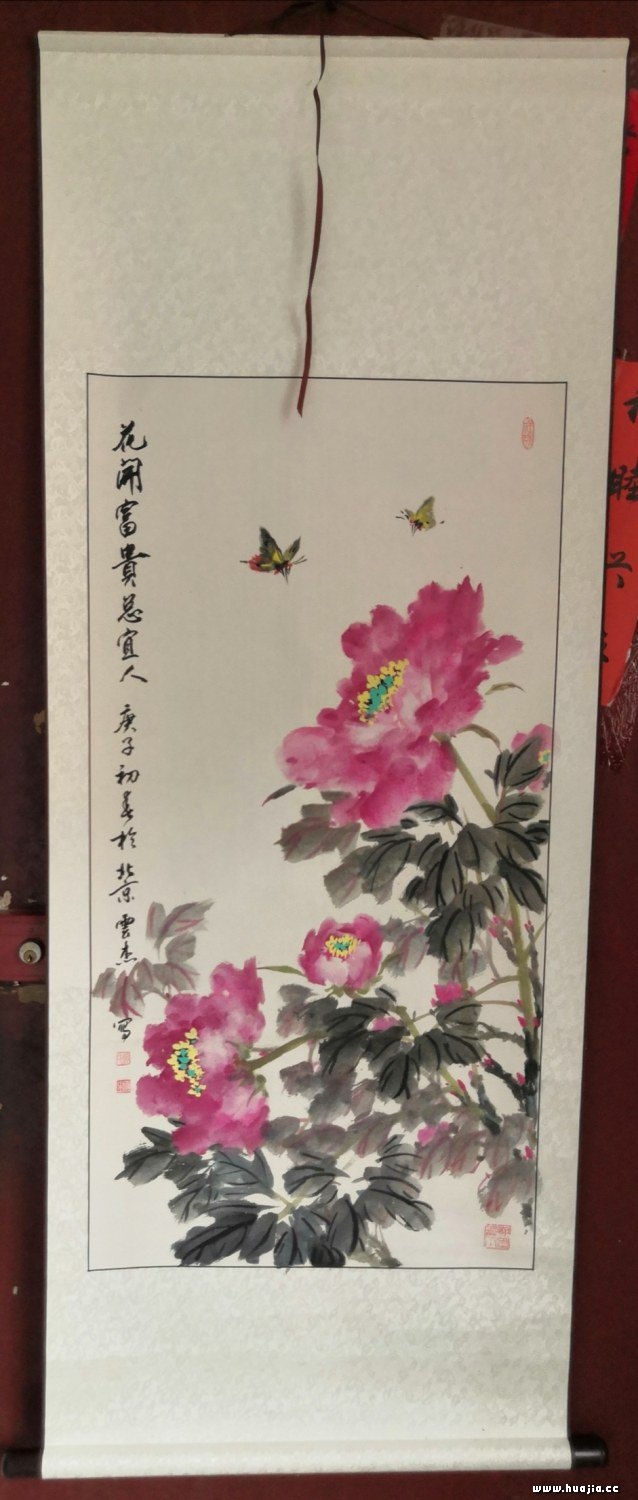 花開富貴总宜人 庚子初春於北京雲杰写
睦
www.huajia.cc